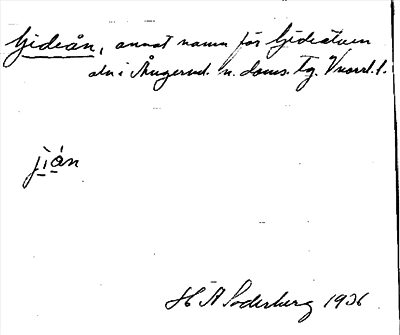 Gideån, annat namn för Gideälven
älv i Ångerml. n. doms. tg. Vnorrl. l.
jiån
H Å Söderberg 1936